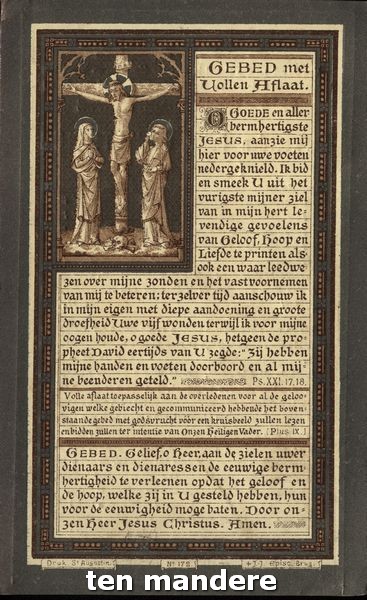 GEBED met
Vollen Aflaat.
O GOEDE en aller
bermhertigste
JESUS, aanzie mij
hier voor uwe voeten
nedergeknield. Ik bid
en smeek U uit het
vurigste mijner ziel
van in mijn hert le-
vendige gevoelens
van Geloof, Hoop en
Liefde te printen als
ook een waar leedwe-
zen over mijne zonden en het vast voornemen
van mij te beteren; terzelver tijd aanschouw ik
in mijn eigen met diepe aandoening en groote
droefheid Uwe vijf wonden terwijl ik voor mijne
oogen houde, o goede JESUS, hetgeen de pro-
pheet David eertijds van U zegde: "Zij hebben
mijne handen en voeten doorboord en al mij-
ne beenderen geteld." Ps. XXI. 17, 18.
Volle aflaat toepasselijk aan de overledenen voor al de geloo-
vigen welke gebiecht en gecommuniceerd hebbende het boven-
staande gebed met godsvrucht vóór een kruisbeeld zullen lezen
en bidden zullen ter intentie van Onzen Heiligen Vader. (Pius IX.)
GEBED. Gelief, o Heer, aan de zielen uwer
dienaars en dienaressen de eeuwige berm-
hertigheid te verleenen opdat het geloof en
de hoop, welke zij in U gesteld hebben, hun
voor de eeuwigheid moge baten. Door on-
zen Heer Jesus Christus. Amen.
Druk. St Augustin. No 172 + J.J. Episc. Brug.
ten mandere